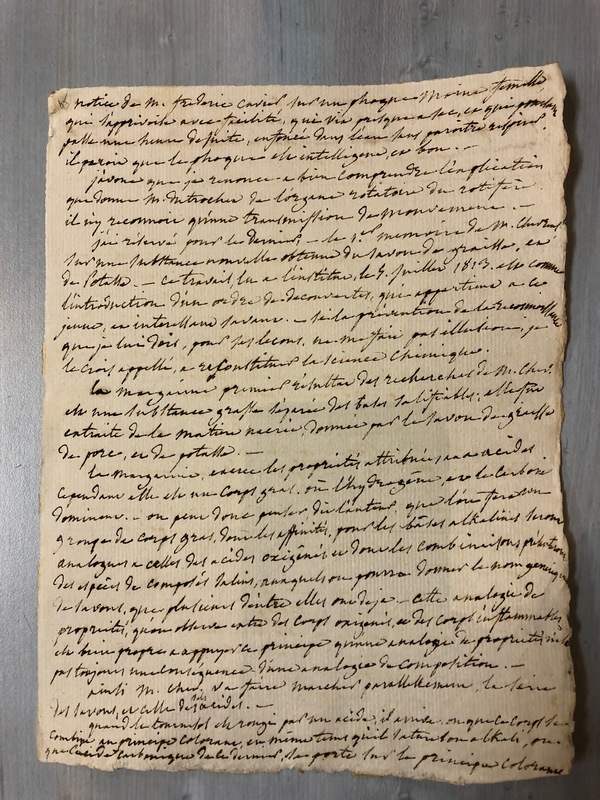 notice de M. frederic Cuvier sur un phoque Moine femelle
qui s'apprivoise avec facilité, qui vit presque a sec, et qui pourtant
passe une heure de suite, enfoncé dans l'eau sans paroitre respirer.
il paroit que le phoque est intelligent, et bon. —
j'avoue que je renonce a bien comprendre l'explication
que donne M. Dutrochet de l'organe rotatoire du rotifère
il n'y reconnoit qu'une transmission de mouvement. —
j'ai réservé pour le dernier, — le 1er memoire de M. Chevreul
sur une substance nouvelle obtenue du savon de graisse, et
de potasse. — ce travail, lu a l'institut, le 5. juillet 1813. est comme
l'introduction d'un ordre de decouvertes, qui appartient a ce
jeune, et interessant savant. — si la prévention de la reconnoissance
que je lui dois, pour ses leçons, ne me fait pas illusion, je
le crois appellé, a reconstituer la science chimique.
la margarine premier resultat des recherches de M. Chev.
est une substance grasse séparée des bases salifiables; elle fut
extraite de la matière nacrée, donnée par le savon de graisse
de porc, et de potasse. —
la margarine, exerce les propriétés attribuées aux acides
cependant elle est un corps gras, où l'hydrogène, et le carbone
dominent. — on peut donc penser dit l'auteur, que l'on fera un
groupe de corps gras, dont les affinités, pour les bases alkalines seront
analogues a celles des acides oxigénés, et dont les combinaisons présenteront
des espèces de composés salins, auxquels on pourra donner le nom generique
de savons, que plusieurs d'entre elles ont deja. — cette analogie de
propriétés, qu'on observe entre des corps oxigenés, et des corps inflammables
est bien propre a appuyer ce principe qu'une analogie de propriétés n'est
pas toujours une consequence d'une analogie de composition. —
ainsi M. Chev. va faire marcher parallelement, la serie
des savons, et celle des sels acides. —
quand le tournesol est rougi par un acide, il arrive, ou que ce corps se
combine au principe colorant, en même tems qu'il sature son alkali, ou
que l'acide carbonique de ce dernier, se porte sur le principe colorant